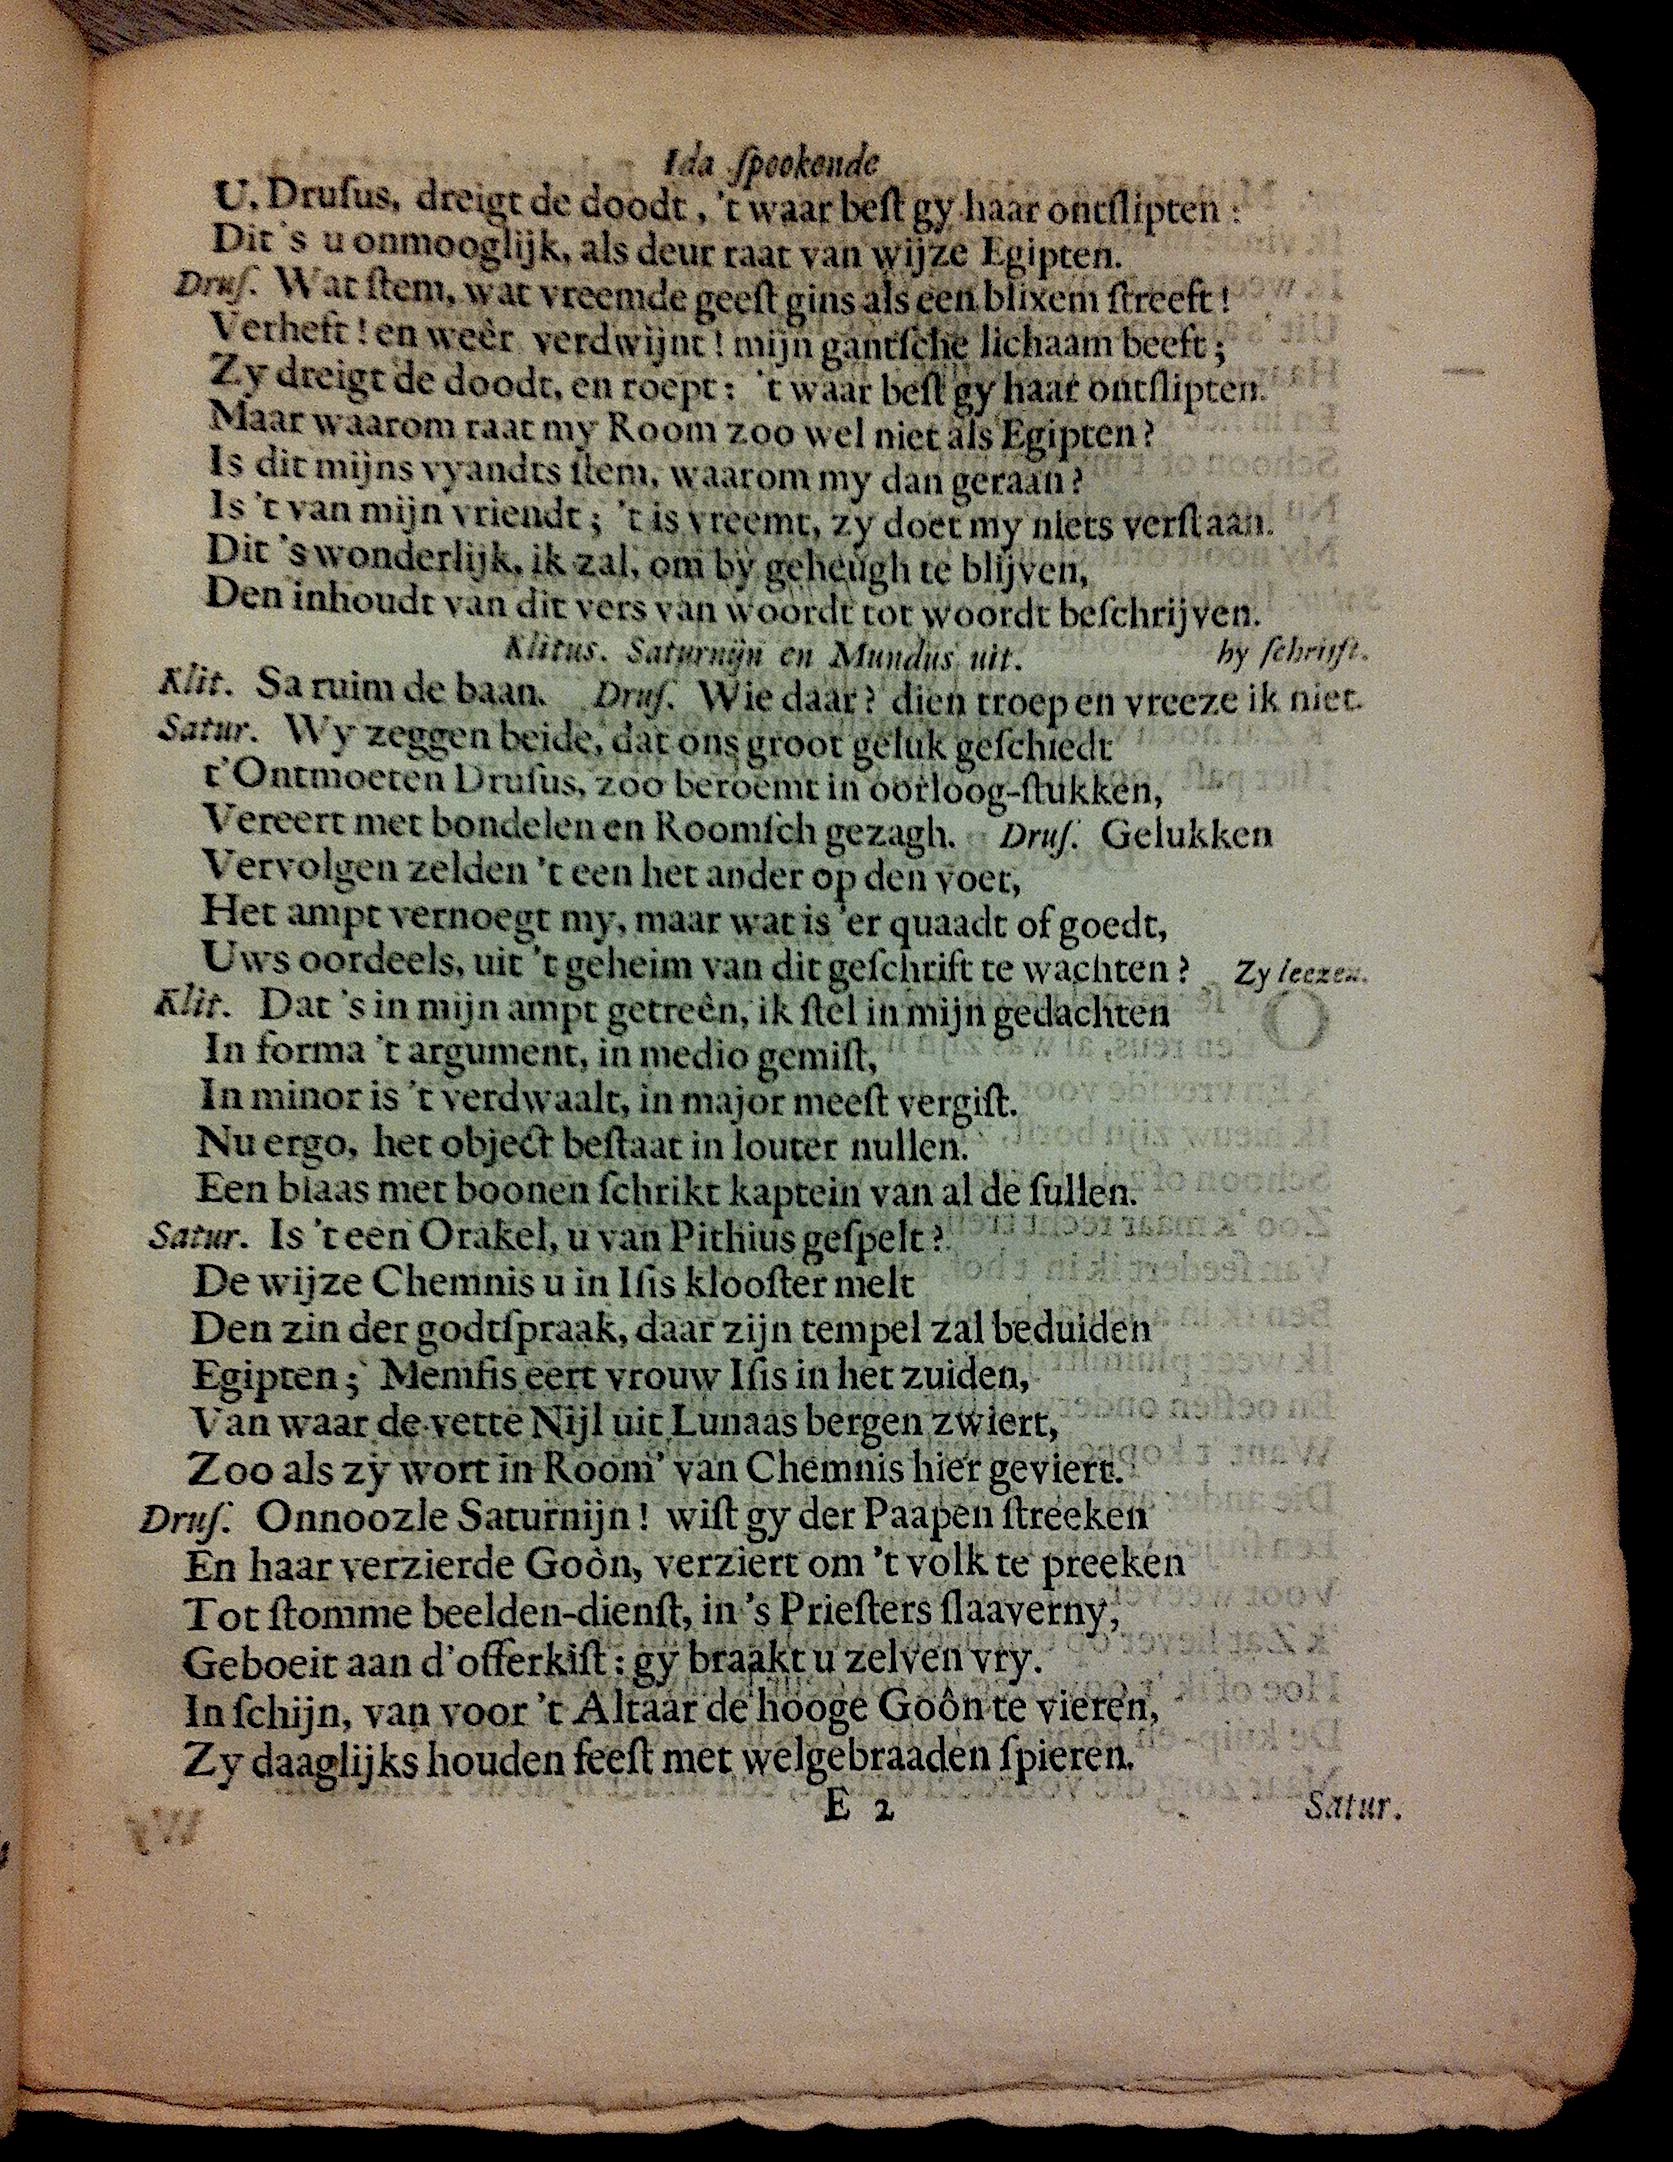 Ida ſpookende
U, Druſus, dreigt de doodt, 't waar beſt gy haar ontſlipten:
Dit 's u onmooglijk, als deur raat van wijze Egipten.
Druſ. Wat ſtem, wat vreemde geeſt gins als een blixem ſtreeft!
Verheft! en weêr verdwijnt! mijn gantſche lichaam beeft;
Zy dreigt de doodt, en roept: 't waar beſt gy haar ontſlipten.
Maar waarom raat my Room zoo wel niet als Egipten?
Is dit mijns vyandts ſtem, waarom my dan geraan?
Is 't van mijn vriendt; 't is vreemt, zy doet my niets verſtaan.
Dit 's wonderlijk, ik zal, om by geheugh te blijven,
Den inhoudt van dit vers van woordt tot woordt beſchrijven.
Klitus. Saturnijn en Mundus uit. hy ſchrijft.
Klit. Sa ruim de baan. Druſ. Wie daar? dien troep en vreeze ik niet.
Satur. Wy zeggen beide, dat ons groot geluk geſchiedt
t'Ontmoeten Druſus, zoo beroemt in oorloog-ſtukken,
Vereert met bondelen en Roomſch gezagh. Druſ. Gelukken
Vervolgen zelden 't een het ander op den voet,
Het ampt vernoegt my, maar wat is 'er quaadt of goedt,
Uws oordeels, uit 't geheim van dit geſchrift te wachten? Zy leezen.
Klit. Dat 's in mijn ampt getreên, ik ſtel in mijn gedachten
In forma 't argument, in medio gemiſt,
In minor is 't verdwaalt, in major meeſt vergiſt.
Nu ergo, het object beſtaat in louter nullen.
Een blaas met boonen ſchrikt kaptein van al de ſullen.
Satur. Is 't een Orakel, u van Pithius geſpelt?
De wijze Chemnis u in Iſis klooſter melt
Den zin der godtſpraak, daar zijn tempel zal beduiden
Egipten; Memfis eert vrouw Iſis in het zuiden,
Van waar de vette Nijl uit Lunaas bergen zwiert,
Zoo als zy wort in Room' van Chemnis hier geviert.
Druſ. Onnoozle Saturnijn! wiſt gy der Paapen ſtreeken
En haar verzierde Goòn, verziert om 't volk te preeken
Tot ſtomme beelden-dienſt, in 's Prieſters ſlaaverny,
Geboeit aan d'offerkiſt: gy braakt u zelven vry.
In ſchijn, van voor 't Altaar de hooge Goôn te vieren,
Zy daaglijks houden feeſt met welgebraaden ſpieren.
E 2 Satur.